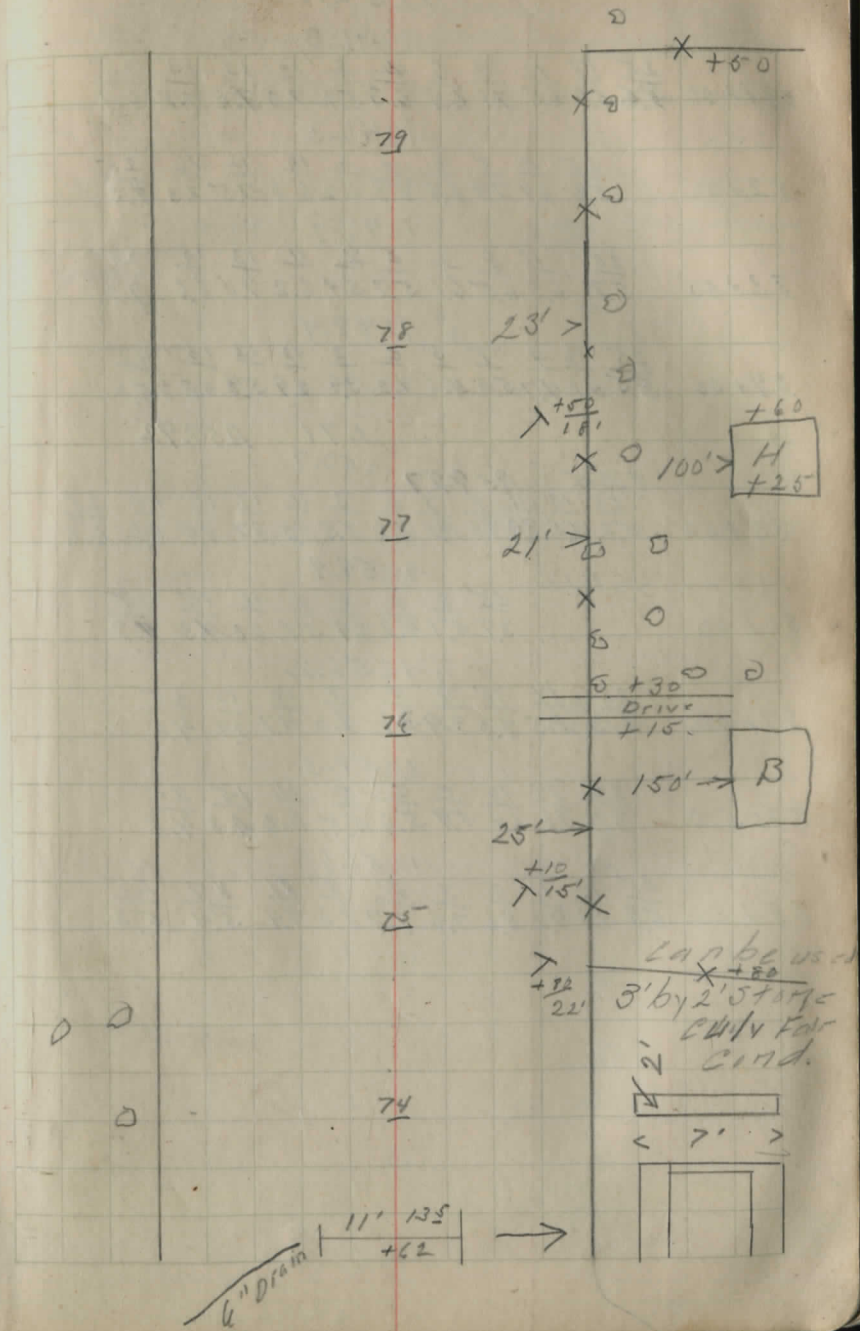 +50
79
78
23'
+50
18'
+60
H
100'
+25
77
21'
+30
Drive
+15
76
B
150'
25'
+10
15'
75
Can be used
+80
22'
3' by 2' Stone
Culv Fair
Cond.
2'
74
7'
11' 135
+62
6" Drain